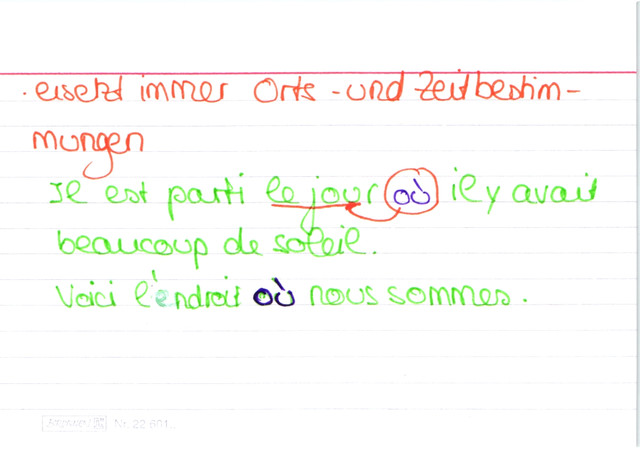 · ersetzt immer Orts - und Zeitbestim-
mungen
Il est parti le jour où il y avait
beaucoup de soleil.
Voici l'endroit où nous sommes.
Nr. 22 601